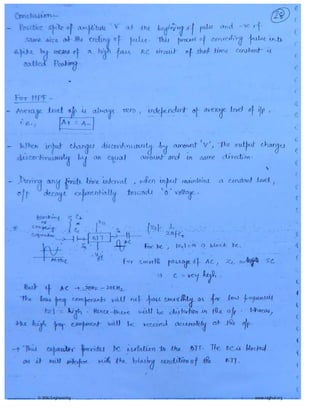 28
Conclusion
- Positive spike of amplitude 'V' at the beginning of pulse and -ve of
same size at the ending of pulse. This process of converting pulse into
spike by means of a high pass RC circuit of short time constant is
called Peaking.
For HPF -
- Average level of o/p is always zero, independent of average level of i/p.
i.e.,
- When input changes discontinuously by amount 'V', the output changes
discontinuously by an equal amount and in same direction.
- During any finite time interval, when input maintains a constant level,
o/p decays exponentially towards '0' voltage.
Blocking
or
coupling
capacitor
BJT
AC
For DC, |Xc|=∞ → block DC.
For smooth passage of AC, SC
→ C = very high.
But if AC → 20Hz - 20KHz
The low freq components will not pass smoothly as for low frequencies
|Xc| = high. Hence there will be distortion in the o/p. Whereas,
the high freq component will be received accurately at the o/p.
→ This capacitor provides DC isolation to the BJT. The DC is blocked
as it will interfere with the biasing condition of the BJT.